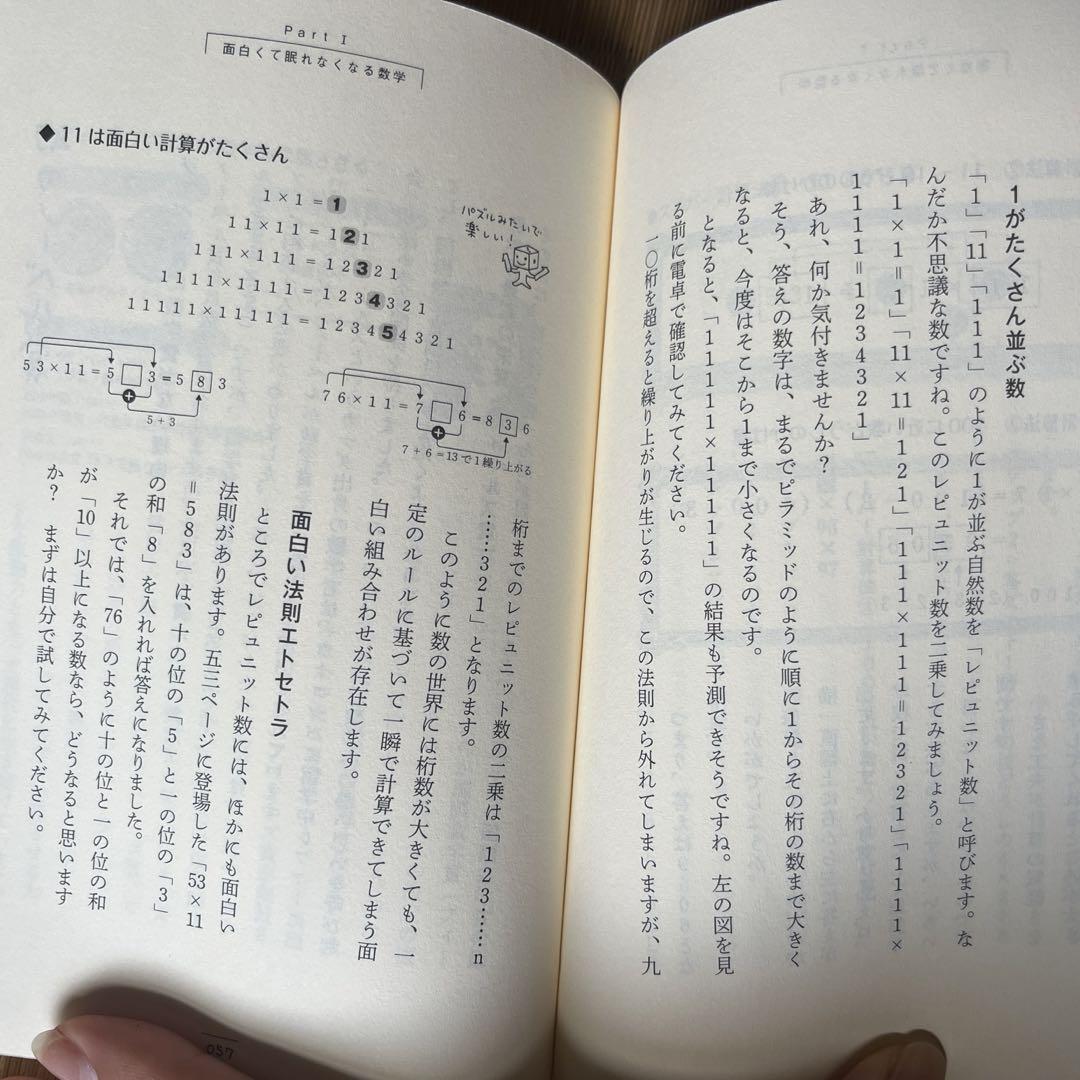 1がたくさん並ぶ数
「1」「11」「111」のように1が並ぶ自然数を「レピュニット数」と呼びます。な
んだか不思議な数ですね。このレピュニット数を二乗してみましょう。
「1×1=1」「11×11=121」「111×111=12321」「1111×
1111=1234321」
あれ、何か気付きませんか?
そう、答えの数字は、まるでピラミッドのように順に1からその桁の数まで大きく
なると、今度はそこから1まで小さくなるのです。
となると、「11111×11111」の結果も予測できそうですね。左の図を見
る前に電卓で確認してみてください。
一〇桁を超えると繰り上がりが生じるので、この法則から外れてしまいますが、九
Part I
面白くて眠れなくなる数学
◆11は面白い計算がたくさん
1×1=1
11×11=121
111×111=12321
1111×1111=1234321
11111×11111=123454321
パズルみたいで
楽しい!
53×11=5□3=583
+
5+3
76×11=7□6=836
+
7+6=13で1繰り上がる
桁までのレピュニット数の二乗は「123……n
……321」となります。
このように数の世界には桁数が大きくても、一
定のルールに基づいて一瞬で計算できてしまう面
白い組み合わせが存在します。
面白い法則エトセトラ
ところでレピュニット数には、ほかにも面白い
法則があります。五三ページに登場した「53×11
=583」は、十の位の「5」と一の位の「3」
の和「8」を入れれば答えになりました。
それでは、「76」のように十の位と一の位の和
が「10」以上になる数なら、どうなると思います
か? まずは自分で試してみてください。
057